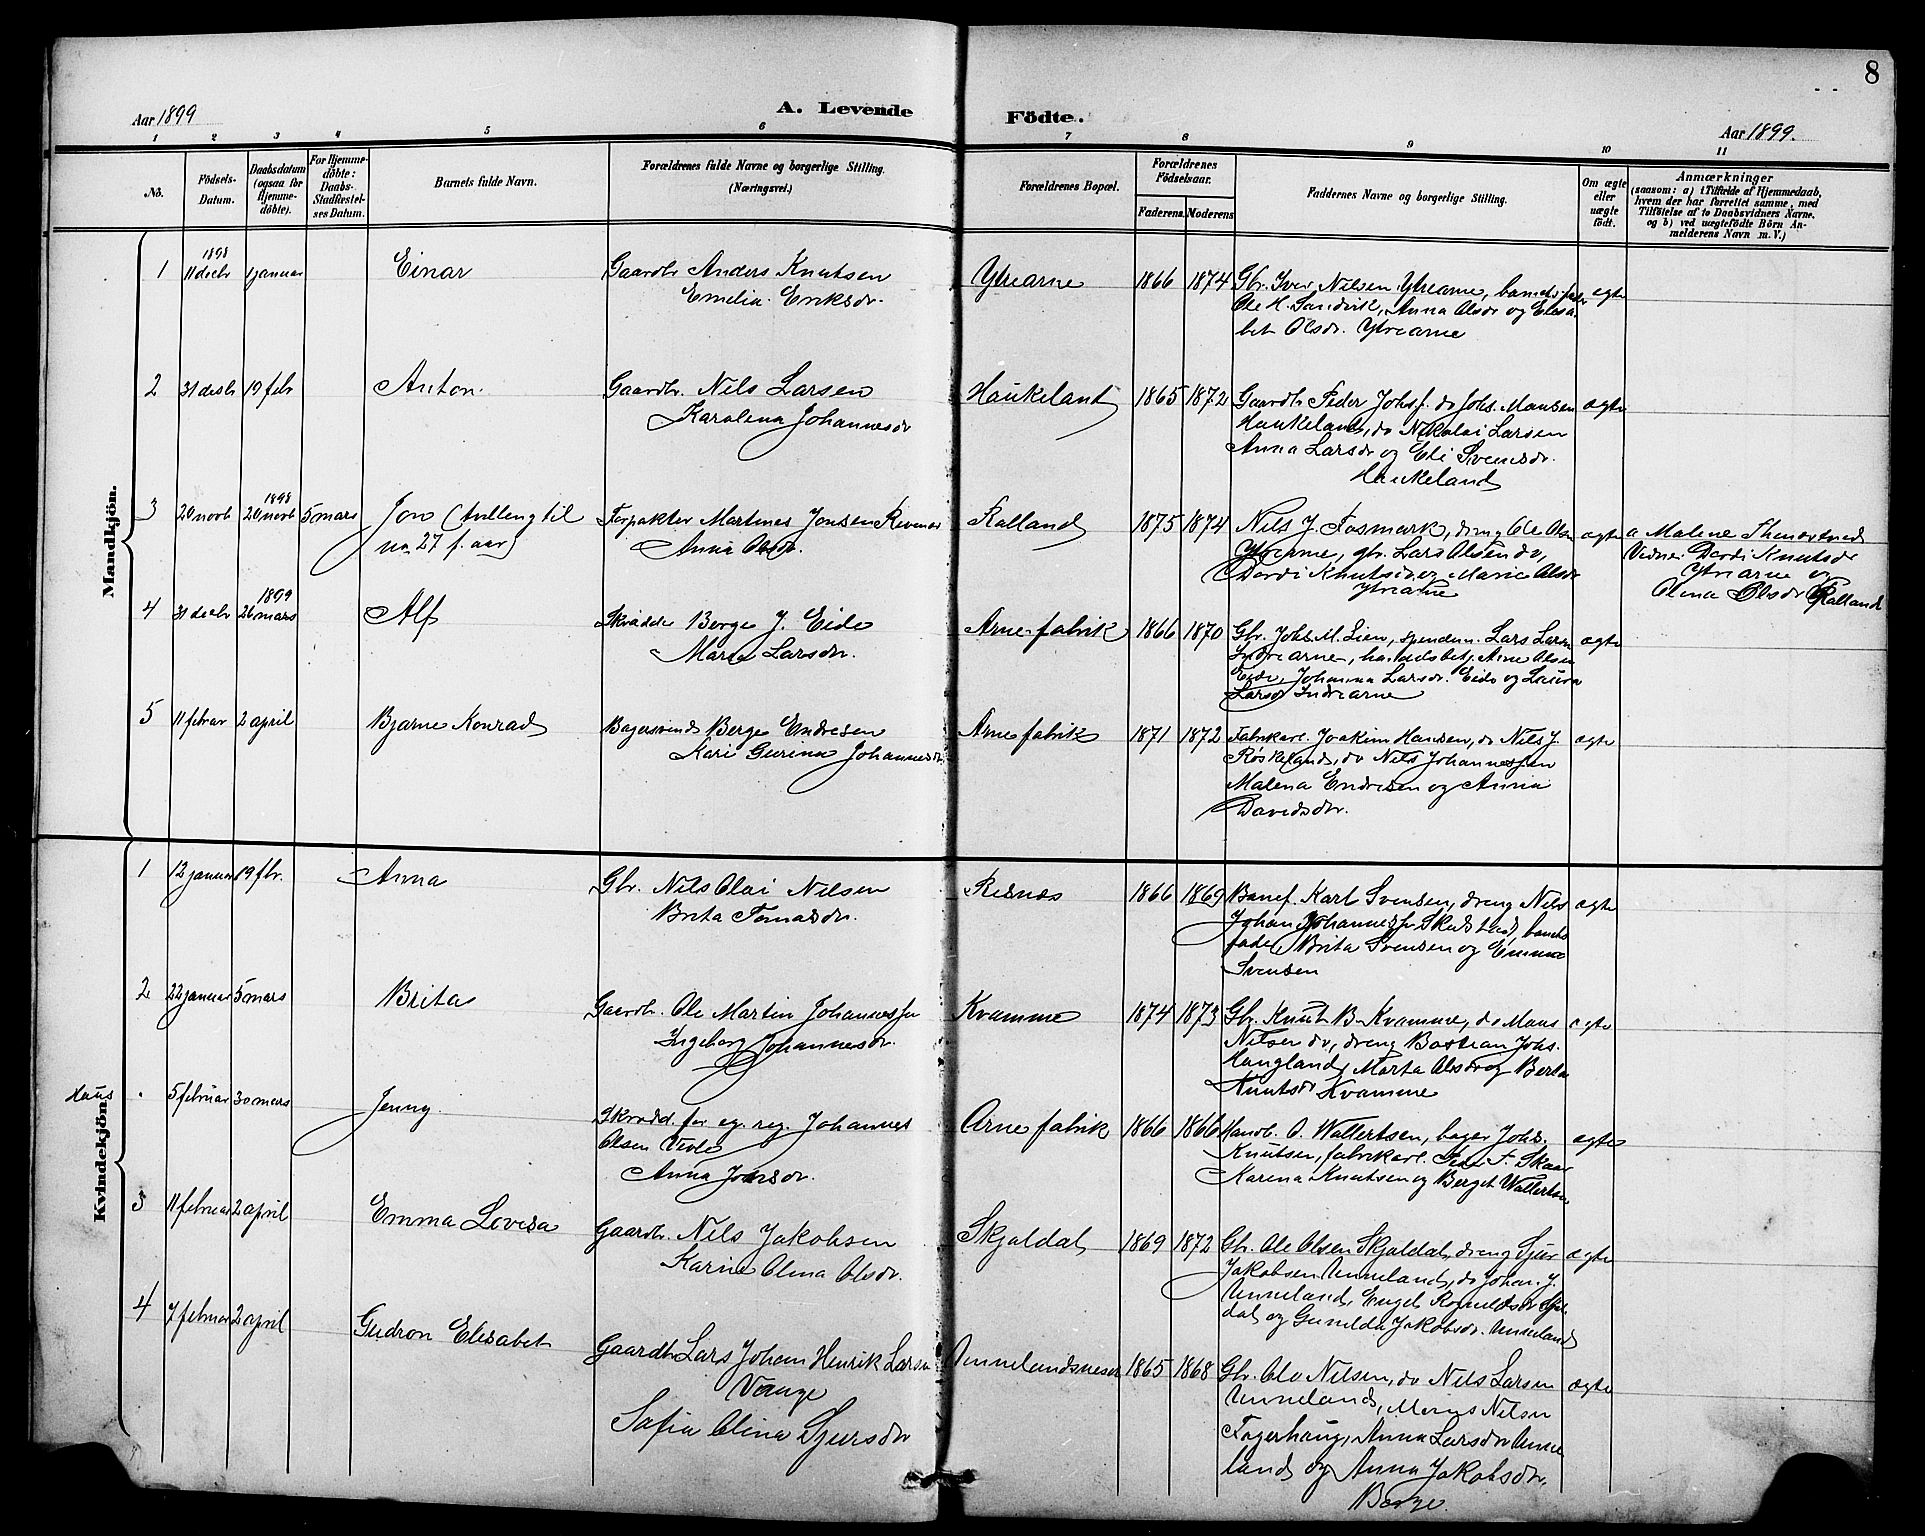 8
Aar 1899
A. Levende
Födte.
Aar 1899.
1 2 3 4 5 6 7 8 9 10 11
No.
Födsels-Datum.
Daabsdatum (ogsaa for Hjemme-döbte).
For Hjemme-döbte: Daabs-Stadfæstel-ses Datum.
Barnets fulde Navn.
Forældrenes fulde Navne og borgerlige Stilling. (Næringsvei.)
Forældrenes Bopæl.
Forældrenes Födselsaar.
Faderens. Moderens
Faddernes Navne og borgerlige Stilling.
Om ægte eller uægte födt.
Anmærkninger
(saasom: a) i Tilfælde af Hjemmedaab,
hvem der har forrettet samme, med
Tilföielse af to Daabsvidners Navne,
og b) ved uægtefödte Börn An-
melderens Navn m. V.)
Mandkjön.
1 1898 11 decbr 1 januar Einar Gaardbr Anders Knutsen Ytrearne 1866 1874 Gbr. Iver Nilsen Ytrearne, barnets fader ægte
Emilia Eriksdr. Ole H. Sandvik, Anna Olsdr og Elisa
bet Olsdr. Ytrearne
2 31 decbr 19 febr Anton. Gaardbr. Nils Larsen Haukeland 1865 1872 Gaardbr Peder Johsf. do Johs. Monsen ægte
Karolina Johannesdr Haukeland, do Nikolai Larsen
Anna Larsdr og Eli Svensdr.
Haukeland
3 20 novb 1898 20 novb 5 mars Jon (tvilling til Forpakter Martines Jonsen Revnes Kalland 1875 1874 Nils J. Fosmark, dreng Ole Olsen ægte a Malene
na 27 f. aar) Anna Olsdr. Ytrearne, gbr. Lars Olsen do, Vidner Dordi Knutsdr
Dordi Knutsdr og Marie Olsdr Ytrearne og
Ytrearne Olina Olsdr Kalland
4 31 decbr 1899 26 mars Alf Skrædder Berge J. Eide Arne fabrik 1866 1870 Gbr. Johs. M. Lien, Lars Larsen ægte
Maria Larsdr. Indrearne, handelsbetj. Arne Olsen
Eide, Johanna Larsdr. Eide og Laura
Larsd Indrearne
5 11 febrar 2 april Bjarne Konrad Bagersvend Berge Endresen Arne fabrik 1871 1872 Fabrikarb. Joakim Hansen, do Nils J. ægte
Kari Gurina Johannesdr Røskeland, do Nils Johannessen
Malena Endresen og Anna
Davidsdr.
Kvindekjön.
1 12 januar 19 fbr. Anna Gbr. Nils Olai Nilsen Risnes 1866 1869 Banef. Karl Svensen, dreng Nils ægte
Brita Tomasdr. Johan Johannessen, barnets
fader, Brita Svensen og Emma
Svensen
2 22 januar 5 mars Brita Gaardbr. Ole Martin Johannessen Kvamme 1874 1873 Gbr. Knut B. Kvamme, do Mons ægte
Ingeborg Johannesdr. Nilsen do, dreng Bastian Johs.
Haugland, Marta Olsdr og Berta
Knutsdr Kvamme
Haus . 5 februar 30 mars Jenny. Skrædd. for eg. reg. Johannes Arne fabrik 1866 1866 Handl. O. Wallertsen, bager Johs. ægte
Olsen Vevle Knutsen, fabrikarb. Skaar
Anna Jonsdr. Karina Knutsen og Berget Wallertsen
3 11 februar 2 april Emma Lovisa Gaardbr. Nils Jakobsen Skjoldal 1869 1872 Gbr. Ole Olsen Skjoldal, dreng Sjur ægte
Karine Olina Olsdr. Jakobsen Unneland, do Johan J.
Unneland, Engel
dal og Gunilda Jakobsdr. Unneland
4 7 februar 2 april Gudron Elisabet Gaardbr Lars Johan Henrik Larsen Unnelandsneset 1865 1868 Gbr. Ole Nilsen, do Nils Larsen ægte
Vange Unneland, Nilsen
Sofia Olina Sjursdr Fagerhaug, Anna Larsdr Unne
land og Anna Jakobsdr.
Borge.